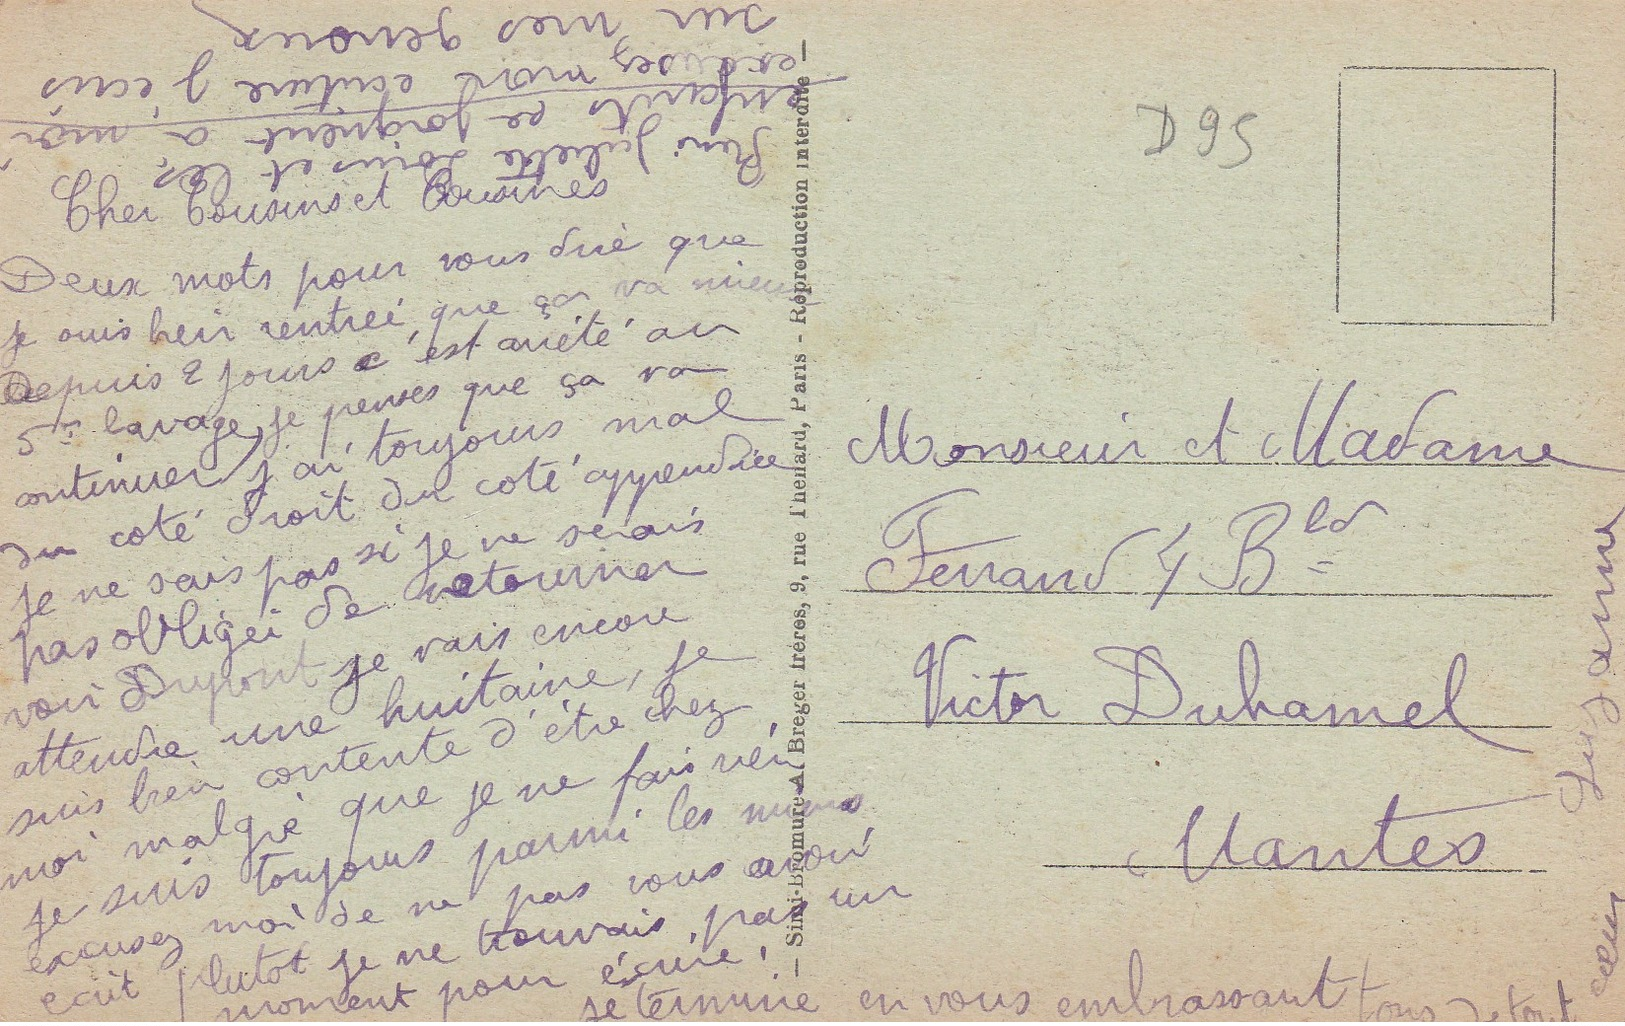 Cher Cousins et Cousines
Deux mots pour vous dire que
je suis bein rentreé, que ça va mieux
depuis 2 jours c'est arrété au
5me lavage, je penses que ça va
continuer, j'ai toujours mal
du coté droit du coté appendice
je ne sais pas si je ne serais
pas obligei de retourner
voir Dupont je vais encore
attendre une huitaine, je
suis bein contente d'être chez
moi malgré que je ne fais rién
je suis toujours parmi les miens
excusez moi de ne pas vous avoir
ecrit plutot je ne trouvais pas un
moment pour écrire,
je termine en vous embrassant tous de tout
cœur
Suzanne
René Juliette Loius et les
enfants se joignent a moi
excusez mon ecriture j'ecris
sur mes genoux
— Simi-Bromure A. Breger frères, 9, rue Thenard, Paris - Reproduction interdite —
D95
Monsieur et Madame
Ferrand 4 Bld
Victor Duhamel
Nantes